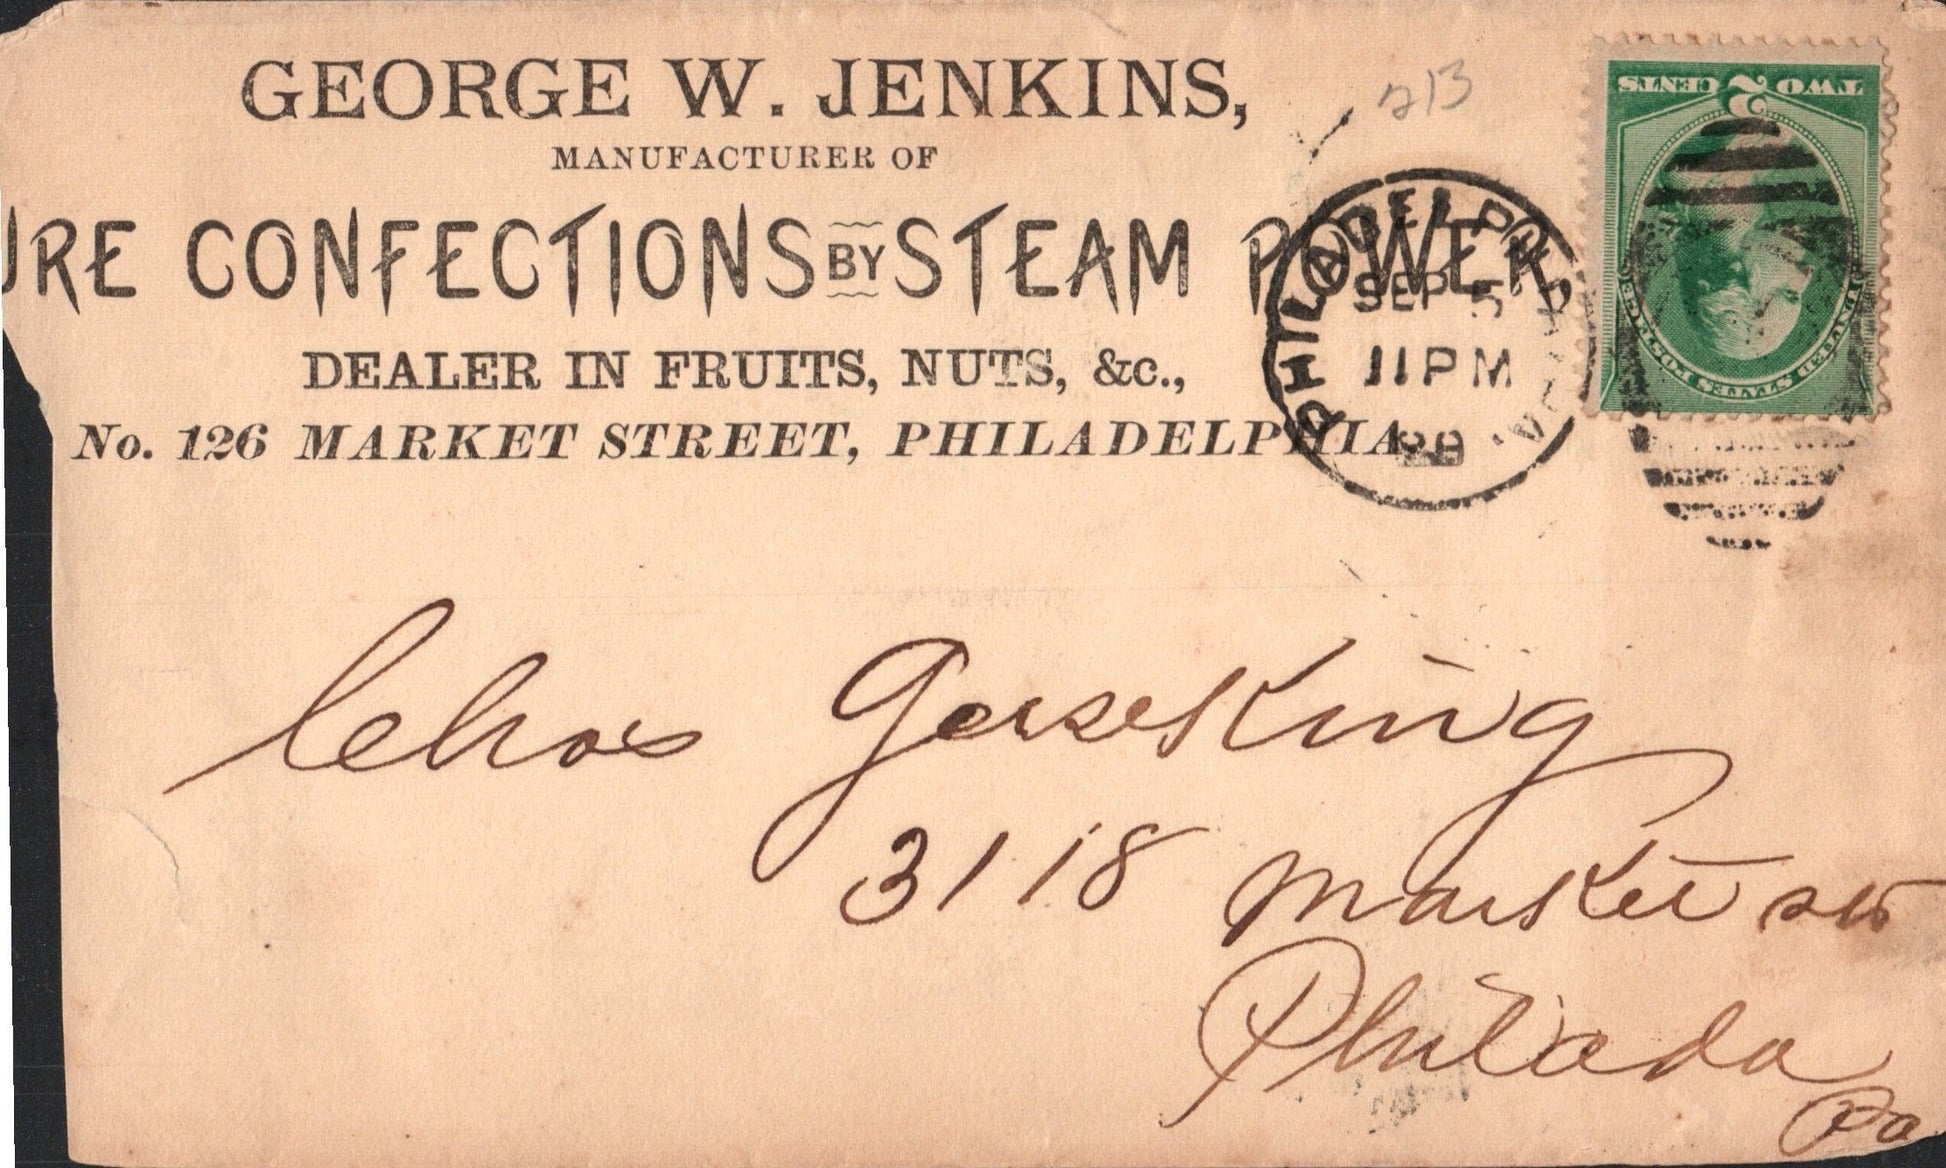 GEORGE W. JENKINS,
MANUFACTURER OF
URE CONFECTIONS BY STEAM POWER,
DEALER IN FRUITS, NUTS, &c.,
No. 126 MARKET STREET, PHILADELPHIA.
213
PHILADELPHIA, PA.
SEP 5
11 PM
88
TWO 2 CENTS
UNITED STATES POSTAGE
Chas Gerseking
3118 Market St
Philada
Pa